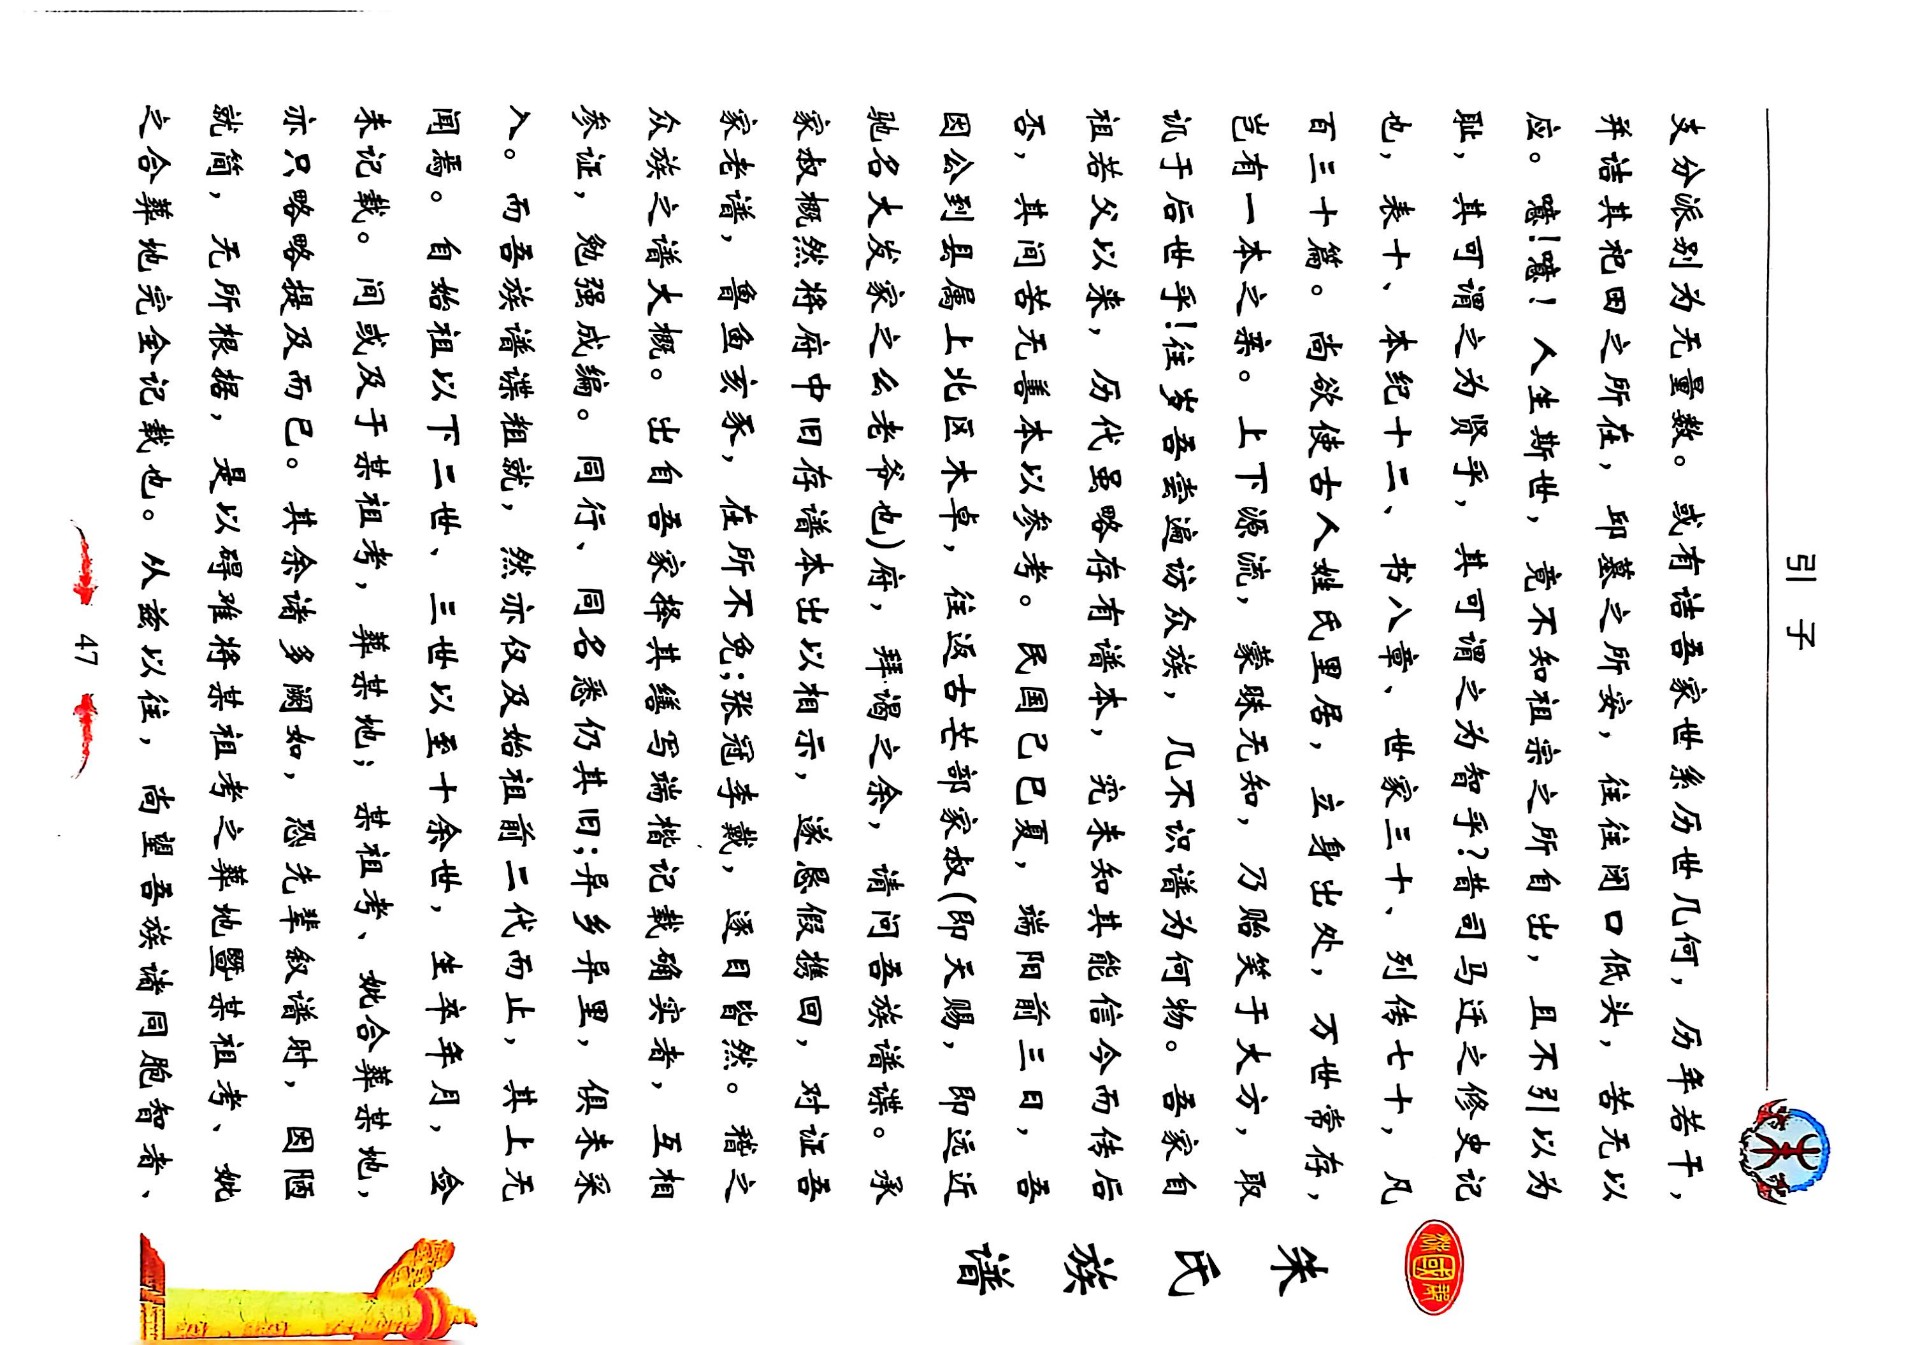 引子
支分派别为无量数。或有诘吾家世系历世几何，历年若干，
并诘其祀田之所在，邱墓之所安，往往闭口低头，苦无以
应。噫！噫！人生斯世，竟不知祖宗之所自出，且不引以为
耻，其可谓之为贤乎，其可谓之为智乎？昔司马迁之修史记
也，表十、本纪十二、书八章、世家三十、列传七十，凡
百三十篇。尚欲使古人姓氏里居，立身出处，万世常存，
岂有一本之亲。上下源流，蒙昧无知，乃贻笑于大方，取
讥于后世乎！往岁吾尝遍访众族，几不识谱为何物。吾家自
祖若父以来，历代虽略存有谱本，究未知其能信今而传后
否，其间苦无善本以参考。民国己巳夏，端阳前三日，吾
因公到县属上北区木卓，往返古芒部家叔（即天赐，即远近
驰名大发家之么老爷也）府，拜谒之余，请问吾族谱谍。承
家叔概然将府中旧存谱本出以相示，遂恳假携回，对证吾
家老谱，鲁鱼亥豕，在所不免；张冠李戴，逐目皆然。稽之
众族之谱大概。出自吾家择其缮写端楷记载确实者，互相
参证，勉强成编。同行、同名悉仍其旧；异乡异里，俱未采
入。而吾族谱谍粗就，然亦仅及始祖前二代而止，其上无
闻焉。自始祖以下二世、三世以至十余世，生卒年月，佥
未记载。间或及于某祖考，葬某地；某祖考、妣合葬某地，
亦只略略提及而已。其余诸多阙如，恐先辈叙谱时，因陋
就简，无所根据，是以碍难将某祖考之葬地暨某祖考、妣
之合葬地完全记载也。从兹以往，尚望吾族诸同胞智者、
47
朱氏族谱